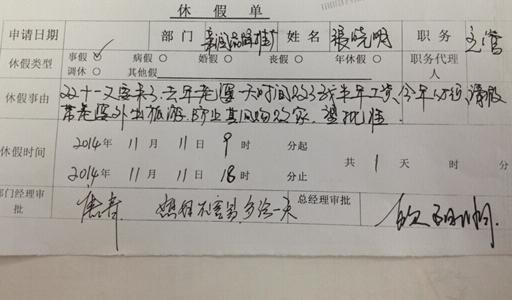 休假单
申请日期 部门 亲润品牌推广 姓名 张晓明 职务 主管
休假类型 事假 病假 婚假 丧假 年休假 职务代理人
调休 其他假
休假事由 双十一又要来了,去年老婆一天时间败了我半年工资,今年 请假
带老婆外出旅游,防止其网购败家,望批准.
休假时间 2014年11月11日9时 分起 共1天 时 分
2014年11月11日18时 分止
部门经理审批 想法不容易,多给一天 总经理审批